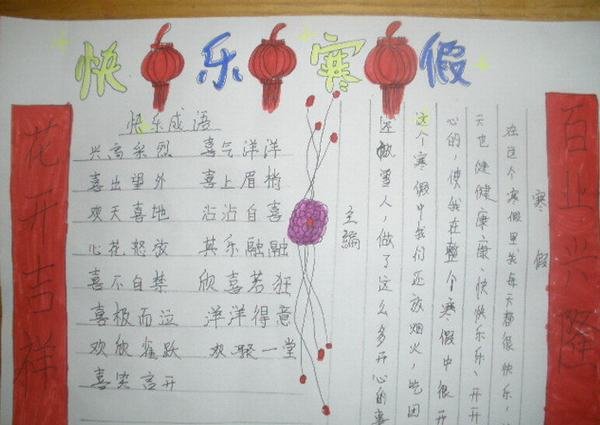 快乐寒假
花开吉祥
快乐成语
兴高采烈 喜气洋洋
喜出望外 喜上眉梢
欢天喜地 沾沾自喜
心花怒放 其乐融融
喜不自禁 欣喜若狂
喜极而泣 洋洋得意
欢欣雀跃 欢聚一堂
喜笑言开
主编
百业兴隆
寒假
在这个寒假里,我每天都很快乐,
天也健健康康、快快乐乐、开开
心的,使我在整个寒假中很开
这个寒假中我们还放烟火,吃团
还做雪人,做了这么多开心的事